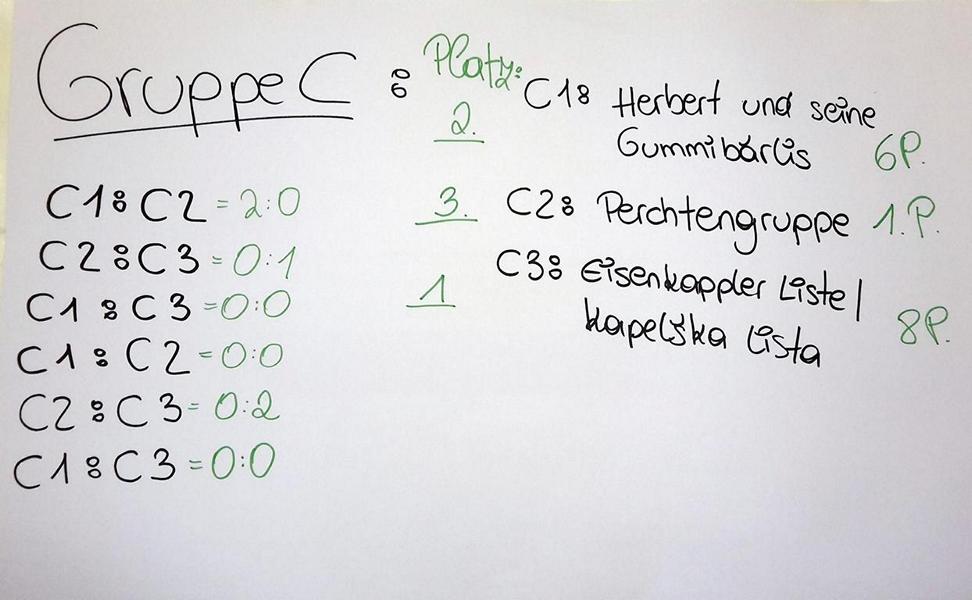 Gruppe C : Platz:
2. C1: Herbert und seine
Gummibärlis 6P.
3. C2: Perchtengruppe 1.P.
1 C3: Eisenkappler Liste/
kapelška Lista 8P.
C1:C2 = 2:0
C2:C3 = 0:1
C1:C3 = 0:0
C1:C2 = 0:0
C2:C3 = 0:2
C1:C3 = 0:0